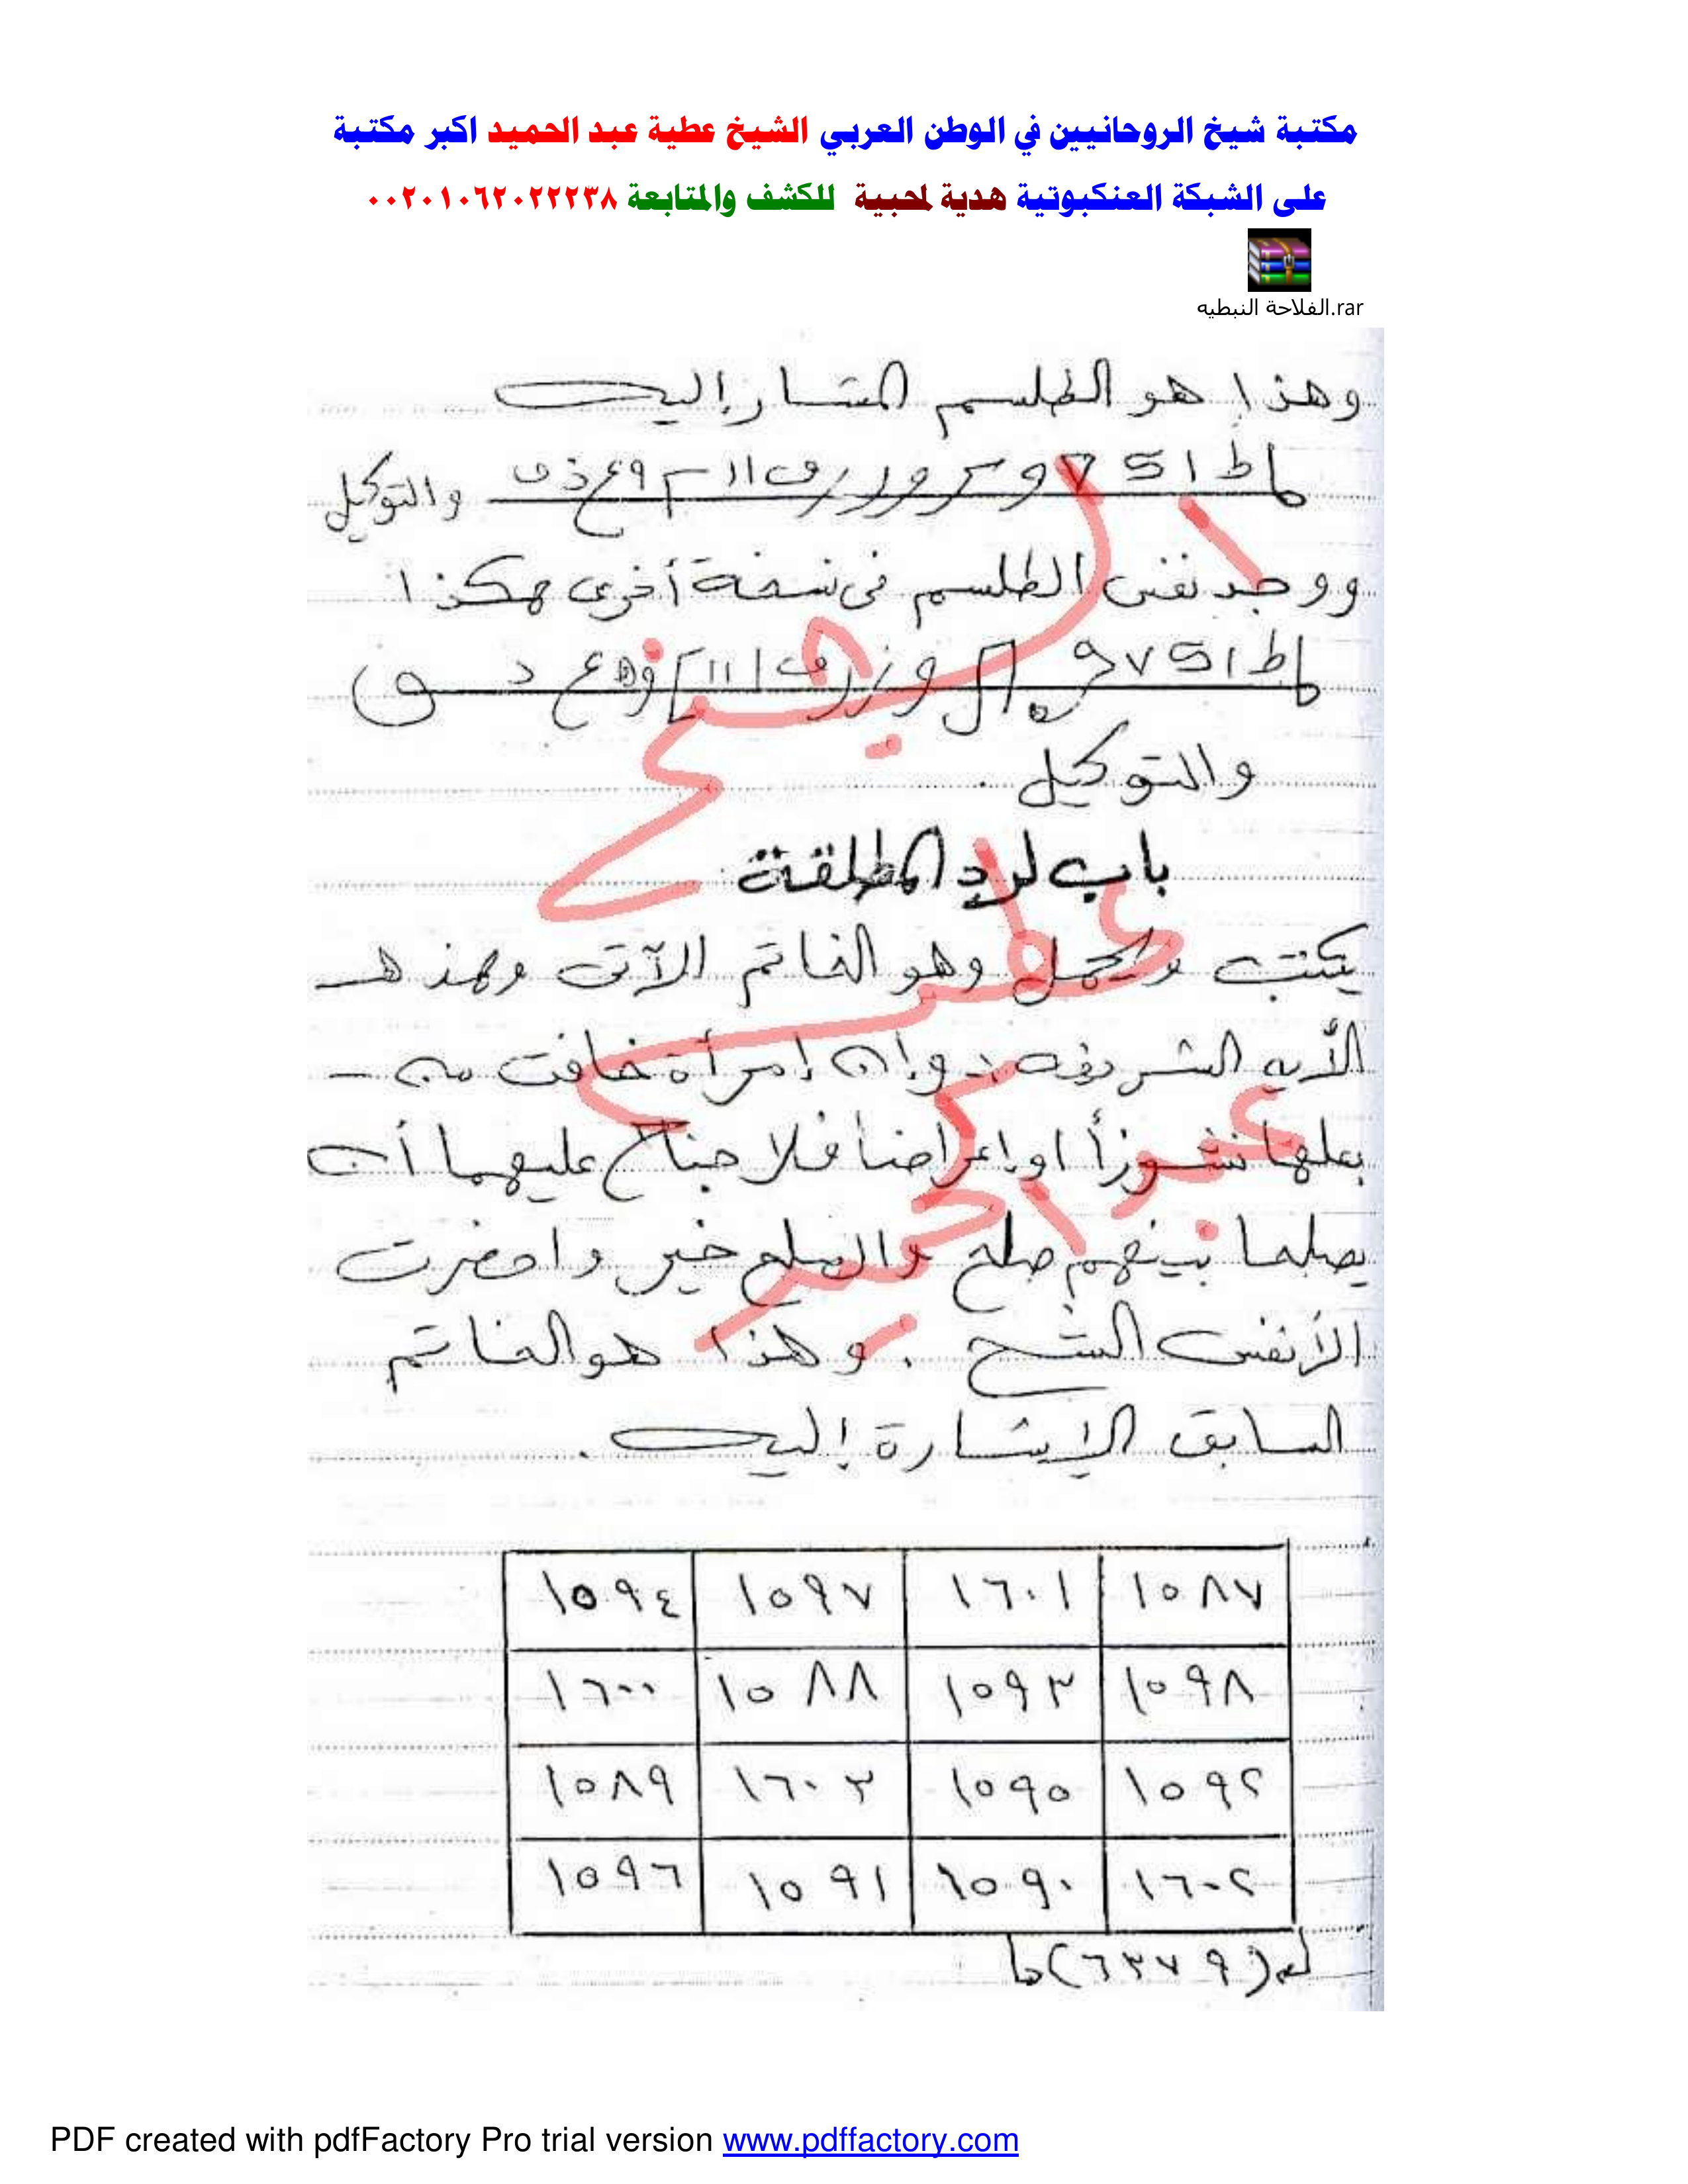 مكتبة شيخ الروحانيين في الوطن العربي الشيخ عطية عبد الحميد اكبر مكتبة
على الشبكة العنكبوتية هدية لمحبية للكشف والمتابعة ٠٠٢٠١٠٦٢٠٢٢٢٣٨
الفلاحة النبطيه.rar
وهذا هو الطلسم المشار إليه
والتوكيل
ووجد نفس الطلسم فى نسخة أخرى هكذا
والتوكيل .
باب لرد المطلقة
يكتب ويحمل وهو الخاتم الآتى وهذه
الأيه الشريفه :- وإن إمرأة خافت من
بعلها نشوزاً او إعراضاً فلا جناح عليهما أن
يصلحا بينهم صلح والصلح خير واحضرت
الأنفس الشح . وهذا هو الخاتم
السابق الإشارة إليه .
١٥٨٧ ١٦٠١ ١٥٩٧ ١٥٩٤
١٥٩٨ ١٥٩٣ ١٥٨٨ ١٦٠٠
١٥٩٢ ١٥٩٥ ١٦٠٣ ١٥٨٩
١٦٠٢ ١٥٩٠ ١٥٩١ ١٥٩٦
(٦٣٧٩)
الشيخ
عطية
عبد الحميد
PDF created with pdfFactory Pro trial version www.pdffactory.com